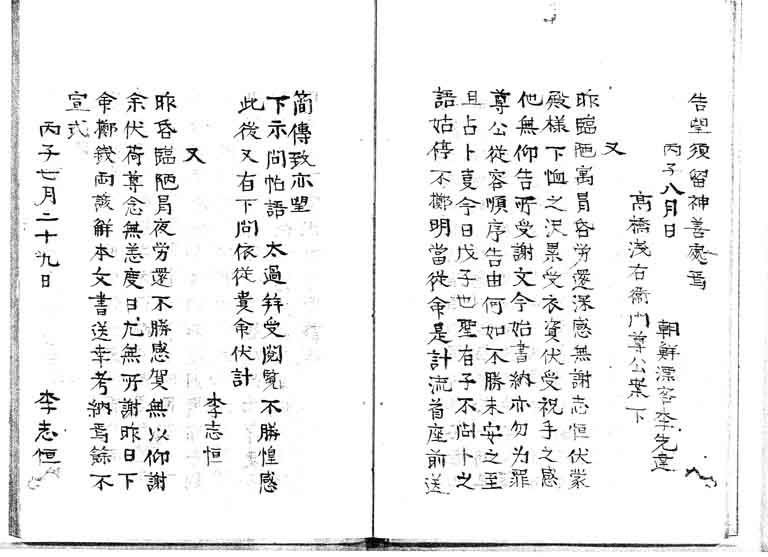 告望須留神善處焉
丙子八月日
朝鮮漂客李先達
髙橋浅右衞門尊公案下
又
昨臨陋寓冐昏劳還深感無謝志恒伏蒙
殿様下恤之沢累受衣資伏受祝手之感
他無仰告所受謝文今始書納亦勿为罪
尊公従容順序告由何如不勝未安之至
且占卜㕝今日戊子也聖有子不问卜之
語姑停不擲明當従命是計流首座前送
簡傳致亦望
下示問怕語太過拜受閲覧不勝惶感
此後又有下問依従貴命伏計
李志恒
又
昨昏臨陋冐夜劳還不勝感賀無以仰謝
余伏荷尊念無恙度日尤無所謝昨日下
命擲錢両䛇解本文書送幸考納焉餘不
宣式
丙子七月二十九日
李志恒